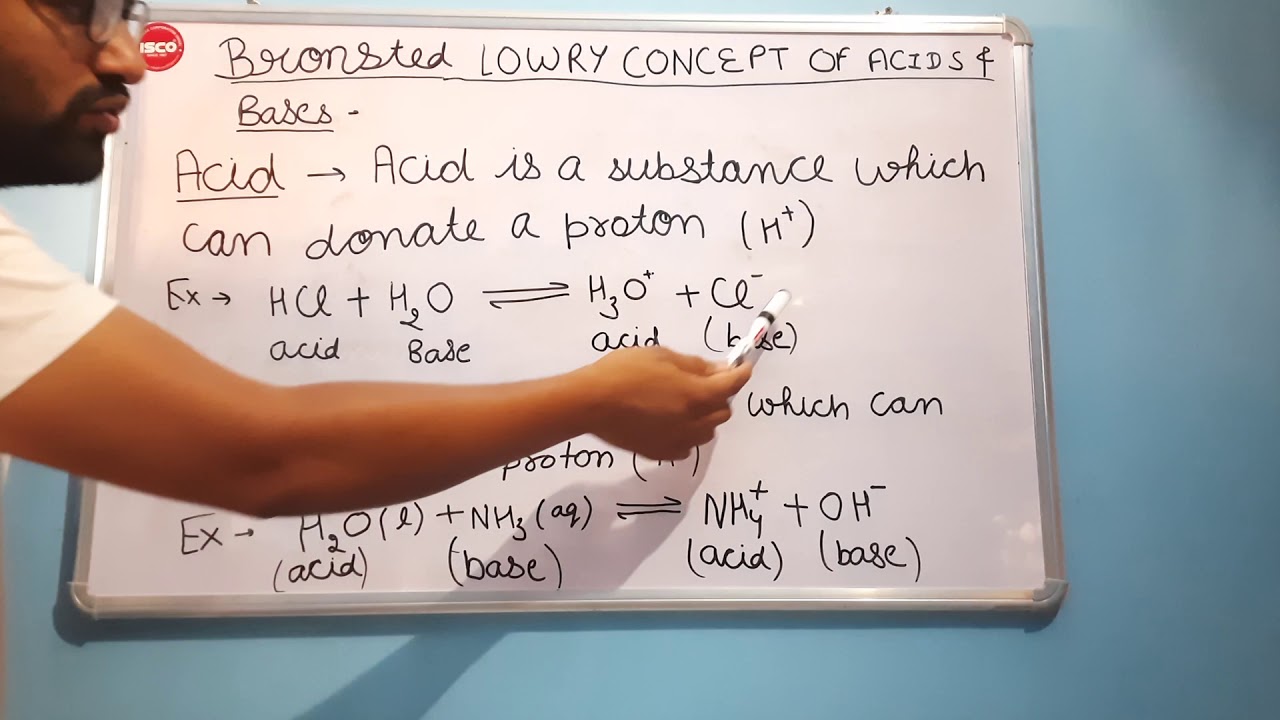 ISCO
Bronsted LOWRY CONCEPT OF ACIDS &
Bases -
Acid → Acid is a substance which
can donate a proton (H⁺)
Ex → HCl + H₂O ⇌ H₃O⁺ + Cl⁻
acid Base acid (base)
which can
proton (H⁺)
Ex → H₂O(l) + NH₃(aq) ⇌ NH₄⁺ + OH⁻
(acid) (base) (acid) (base)